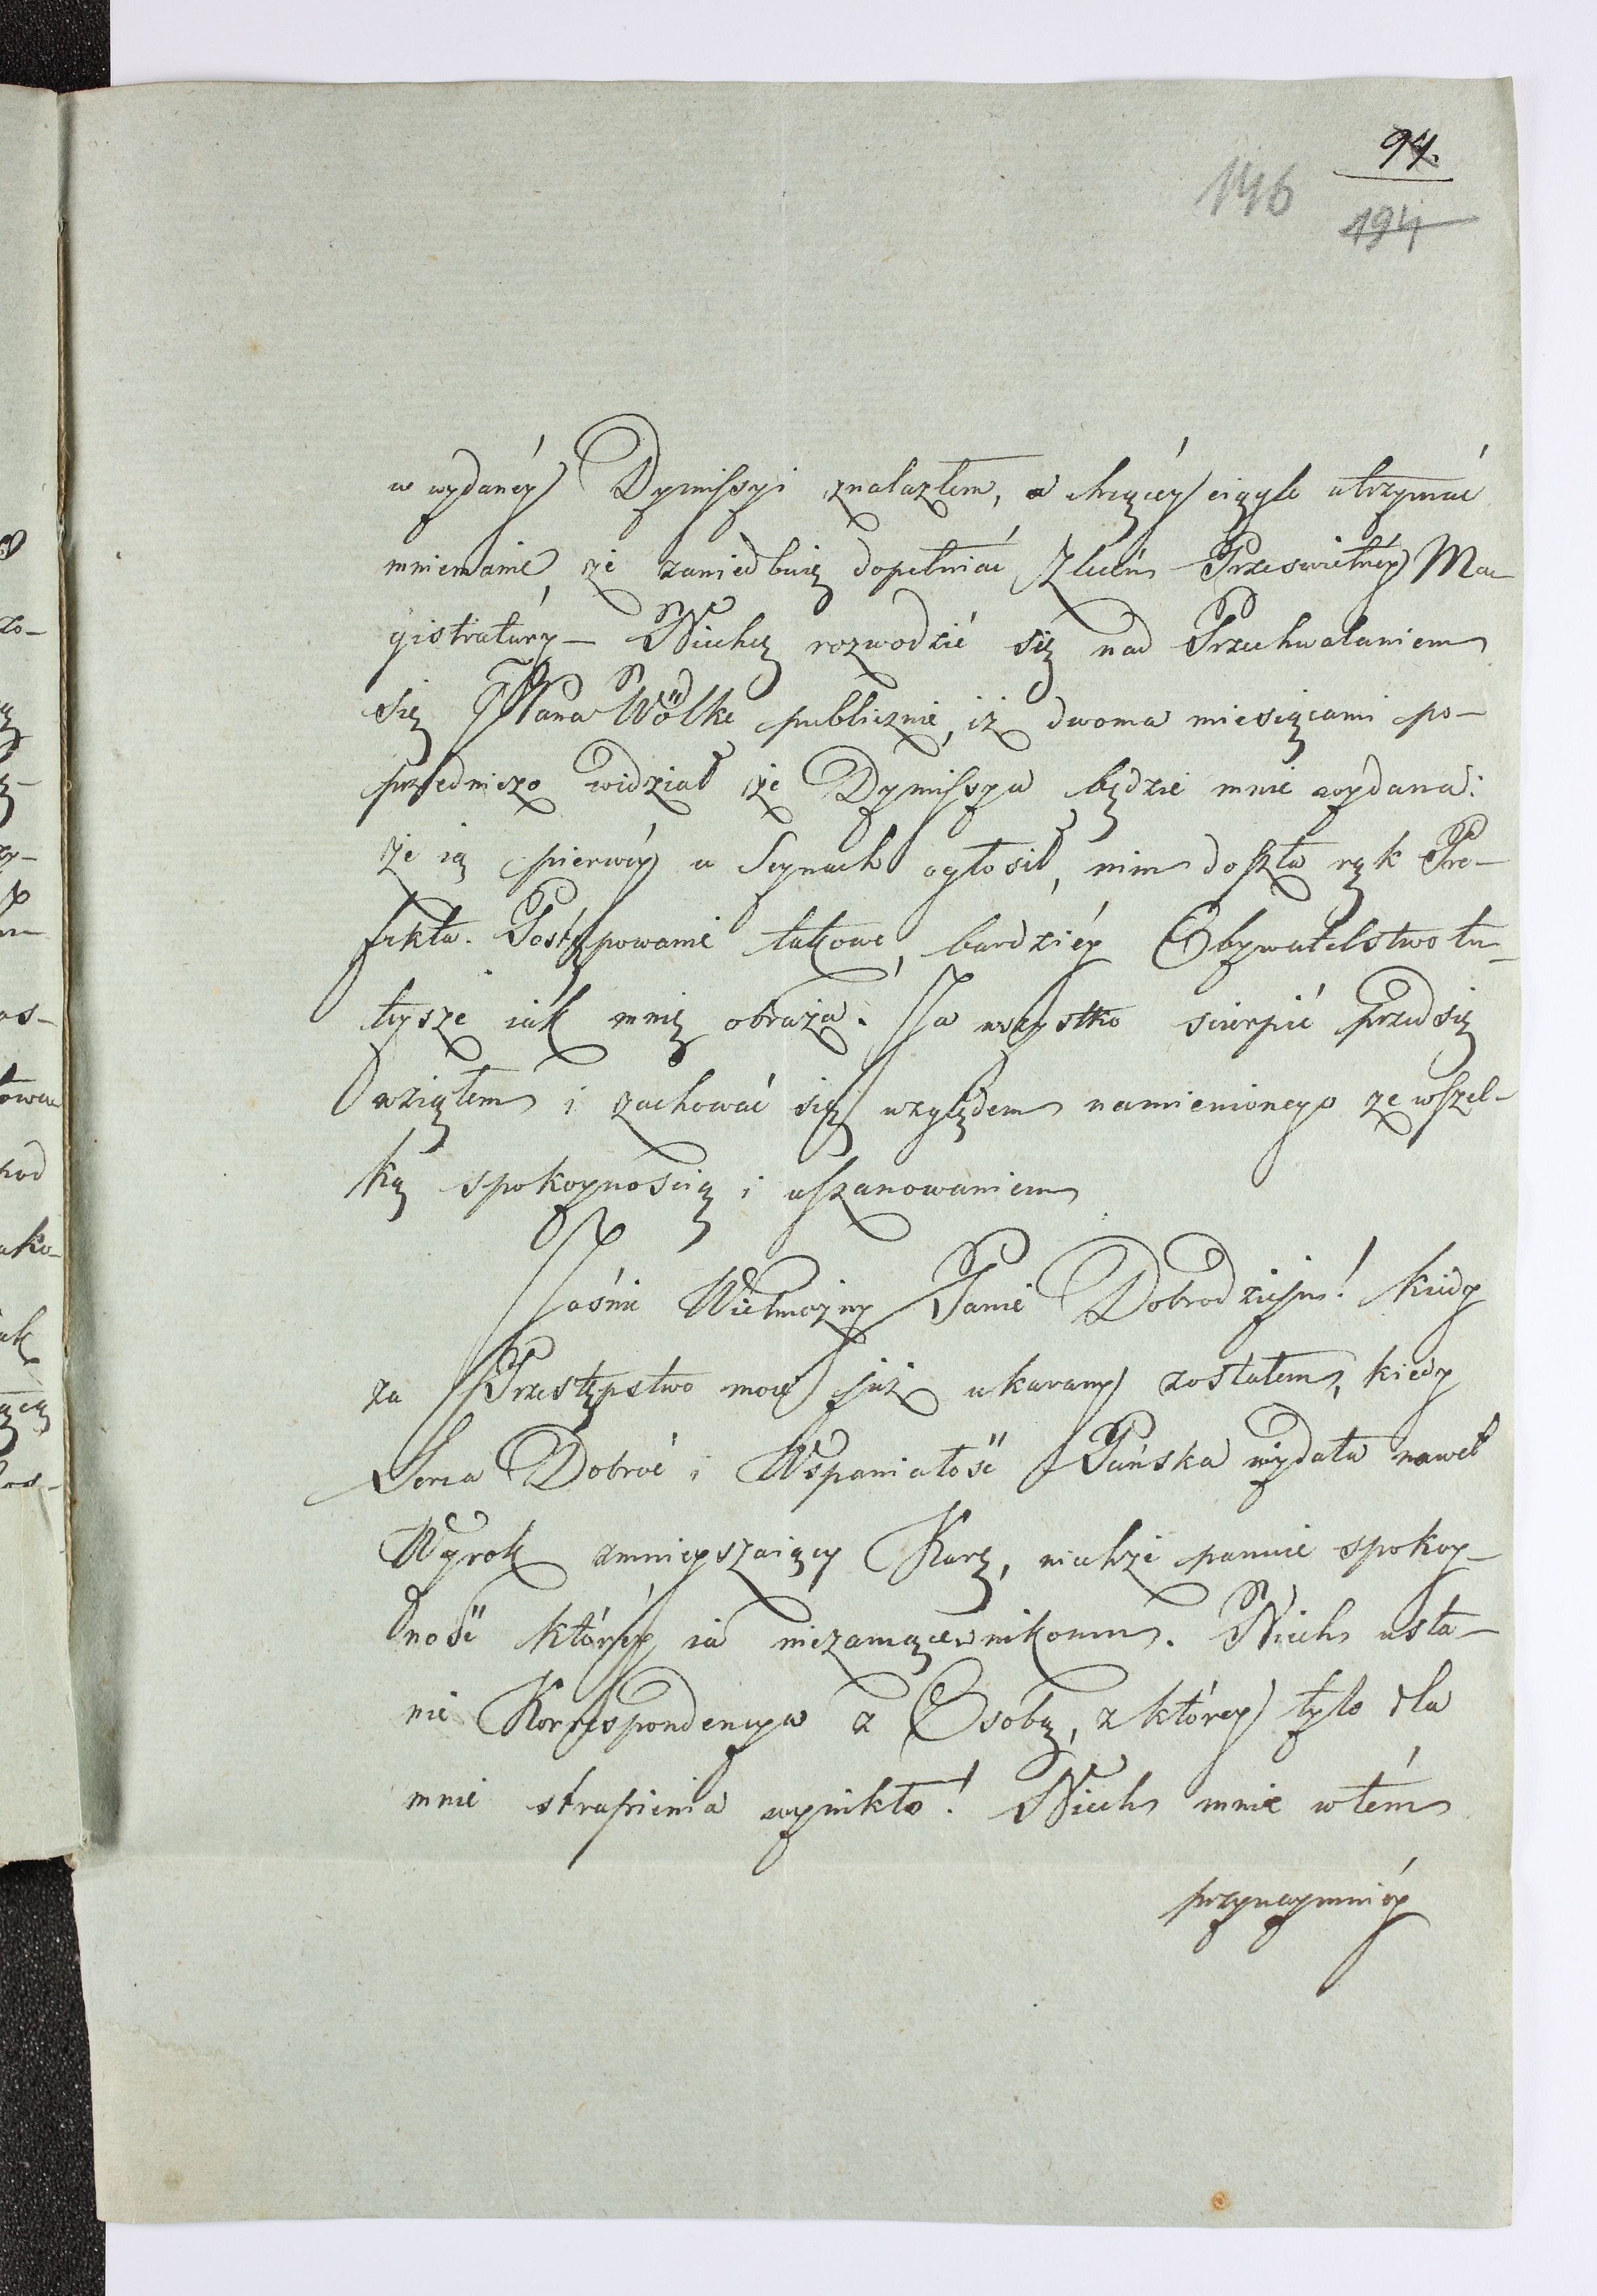 94.
146
194
w wydanéy Dymissyi znalazłem, a chcącéy ciągle utrzymać
mniemanie, że zaniedbuię dopełniać Zleceń Prześwietnéy Ma-
gistratury – Niechcę rozwodzić się nad Przechwalaniem
się JPana Wölke publicznie, iż dwoma miesiącami po-
przedniczo widział że Dymissya będzie mnie wydana:
że ią pierwéy w Seynach ogłosił, nim doszła rąk Pre-
fekta. Postępowanie takowe, bardziéy Obywatelstwo tu-
teysze iak mnię obraża. Ja wszystko scierpić przedsię
wziąłem i zachować się względem namienionego ze wszel-
ką spokoynością i uszanowaniem
Jaśnie Wielmożny Panie Dobrodzieju! kiedy
za Przestępstwo moie już ukarany zostałem, kiedy
Serca Dobroć i Wspaniałość Pańska wydała nawet
Wyrok zmnieyszaiący Karę, niechże panuie spokoy-
ność któréy ia niezamącę nikomu. Niech usta-
nie Korrespondencya z Osobą, z któréy tylo dla
mnie strapienia wynikło! Niech mnie w tém
przynaymniéy